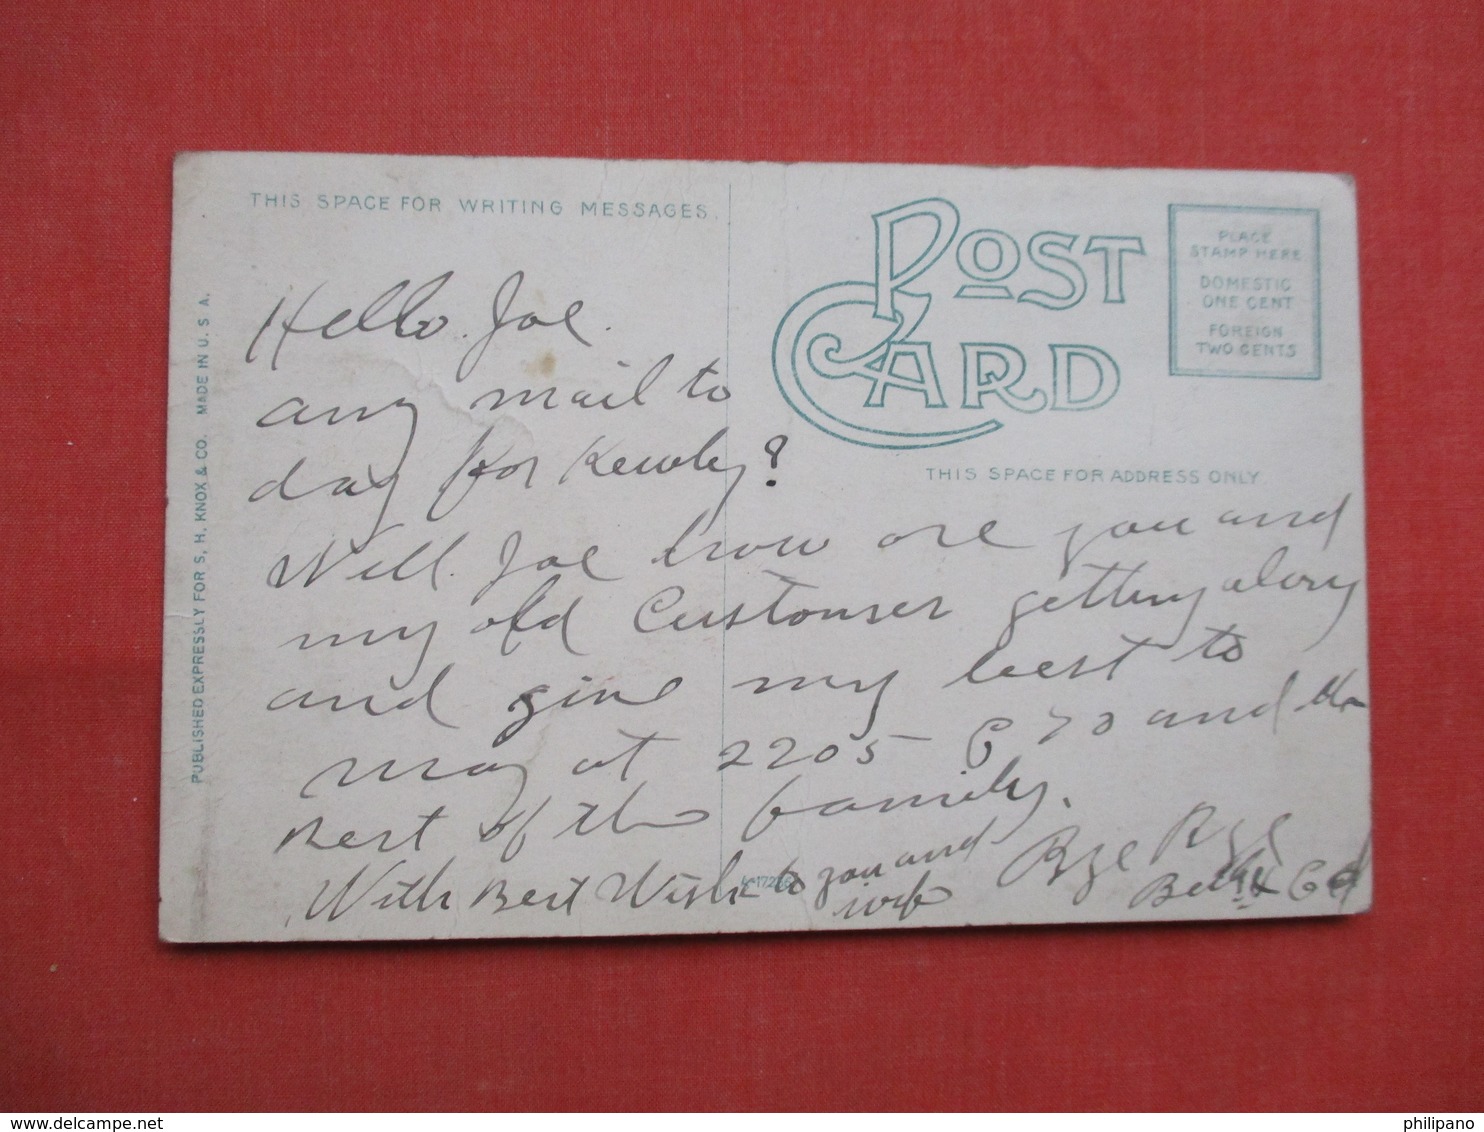 THIS SPACE FOR WRITING MESSAGES.
POST CARD
PLACE
STAMP HERE
DOMESTIC
ONE CENT
FOREIGN
TWO CENTS
THIS SPACE FOR ADDRESS ONLY
PUBLISHED EXPRESSLY FOR S. H. KNOX & CO. MADE IN U. S. A.
Hello. Joe.
any mail to
day for ?
Well. Joe how are you and
my old Customer getting along
and give my best to
may at 2205 and the
Rest of the family.
With Best Wishe to you and
wife
Bye Bye
www.delcampe.net
philipano